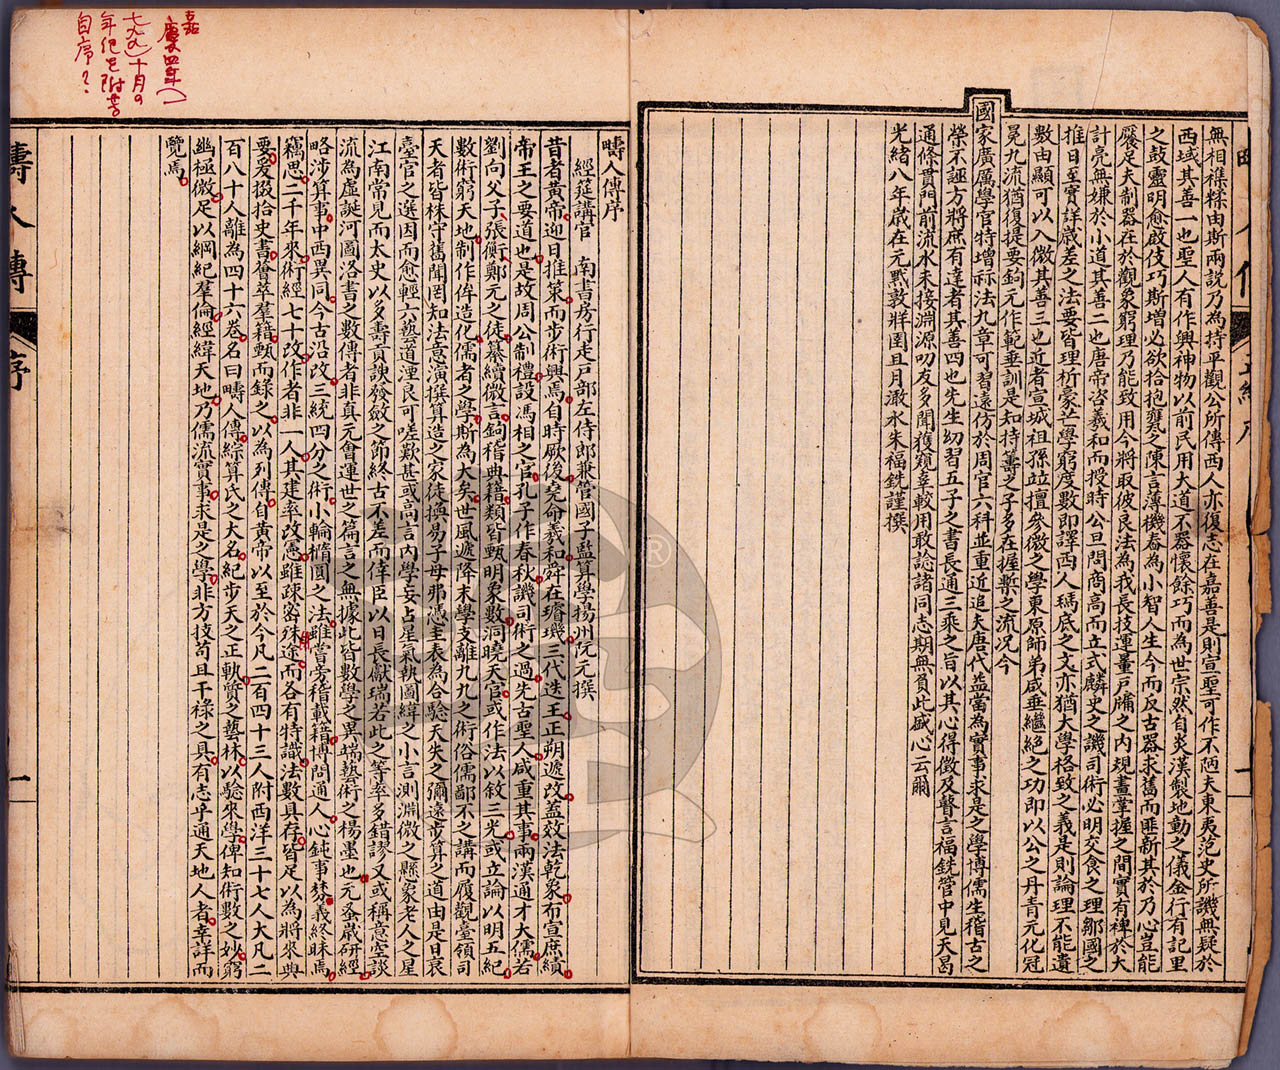 無相襍糅由斯兩說乃為持平觀公所傳西人亦復志在嘉善是則宣聖可作不陋夫東夷范史所譏無疑於
西域其善一也聖人有作興神物以前民用大道不器懷餘巧而為世宗然自炎漢製地動之儀金行有記里
之鼓靈明愈啟伎巧斯增必欲拾抱甕之陳言薄機舂為小智人生今而反古器求舊而匪新其於乃心豈能
饜足夫制器在於觀象窮理乃能致用今將取彼良法為我長技運量戶牖之內規畫掌握之間實有裨於大
計亮無嫌於小道其善二也唐帝咨羲和而授時公旦問商高而立式麟史之譏司術必明交食之理鄒國之
推日至實詳歲差之法要皆理析豪芒學窮度數即譯西人稿底之文亦猶大學格致之義是則論理不能遺
數由顯可以入微其善三也近者宣城祖孫竝擅參微之學東原師弟咸垂繼絕之功即以公之丹青元化冠
冕九流猶復提要鉤元作範垂訓是知持籌之子多在握槧之流況今
國家廣厲學官特增祘法九章可習遠仿於周官六科並重近追夫唐代葢當為實事求是之學博儒生稽古之
榮不誣方將庶有達者其善四也先生幼習五子之書長通三乘之旨以其心得徵及瞽言福銑管中見天曷
通條貫門前流水未接淵源叨友多聞獲窺辜較用敢諗諸同志期無負此盛心云爾
光緒八年歲在元黓敦牂圉且月澉水朱福銑謹撰
疇人傳序
經筵講官 南書房行走戶部左侍郎兼管國子監算學揚州阮元撰
昔者黃帝迎日推策而步術興焉自時厥後堯命羲和舜在璿璣三代迭王正朔遞改葢效法乾象布宣庶績
帝王之要道也是故周公制禮設馮相之官孔子作春秋譏司術之過先古聖人咸重其事兩漢通才大儒若
劉向父子張衡鄭元之徒纂續微言鉤稽典籍類皆甄明象數洞曉天官或作法以敘三光或立論以明五紀
數術窮天地制作侔造化儒者之學斯為大矣世風遞降末學支離九九之術俗儒鄙不之講而履觀臺領司
天者皆株守舊聞罔知法意演撰算造之家徒換易子母弗憑圭表為合驗天失之彌遠步算之道由是日衰
臺官之選因而愈輕六藝道湮良可嗟歎甚或高言內學妄占星氣執圖緯之小言測淵微之懸象老人之星
江南常見而太史以多壽貢諛發斂之節終古不差而倖臣以日長獻瑞若此之等率多錯謬又或稱意空談
流為虛誕河圖洛書之數傳者非真元會運世之篇言之無據此皆數學之異端藝術之楊墨也元蚤歲研經
略涉算事中西異同今古沿改三統四分之術小輪橢圓之法雖嘗旁稽載籍博問通人心鈍事棼義終昧焉
竊思二千年來術經七十改作者非一人其建率改憲雖疎密殊途而各有特識法數具存皆足以為將來典
要爰掇拾史書薈萃羣籍甄而錄之以為列傳自黃帝以至於今凡二百四十三人附西洋三十七人大凡二
百八十人離為四十六卷名曰疇人傳綜算氏之大名紀步天之正軌質之藝林以驗來學俾知術數之妙窮
幽極微足以綱紀羣倫經緯天地乃儒流實事求是之學非方技苟且干祿之具有志乎通天地人者幸詳而
覽焉
疇人傳
序
一
嘉慶四年
十月
自序